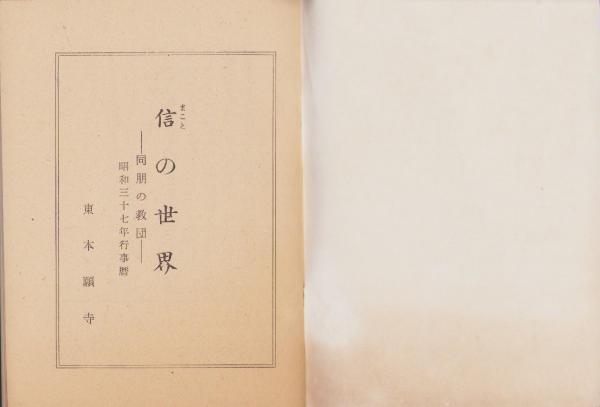 信の世界
まこと
―同朋の教団―
昭和三十七年行事暦
東本願寺